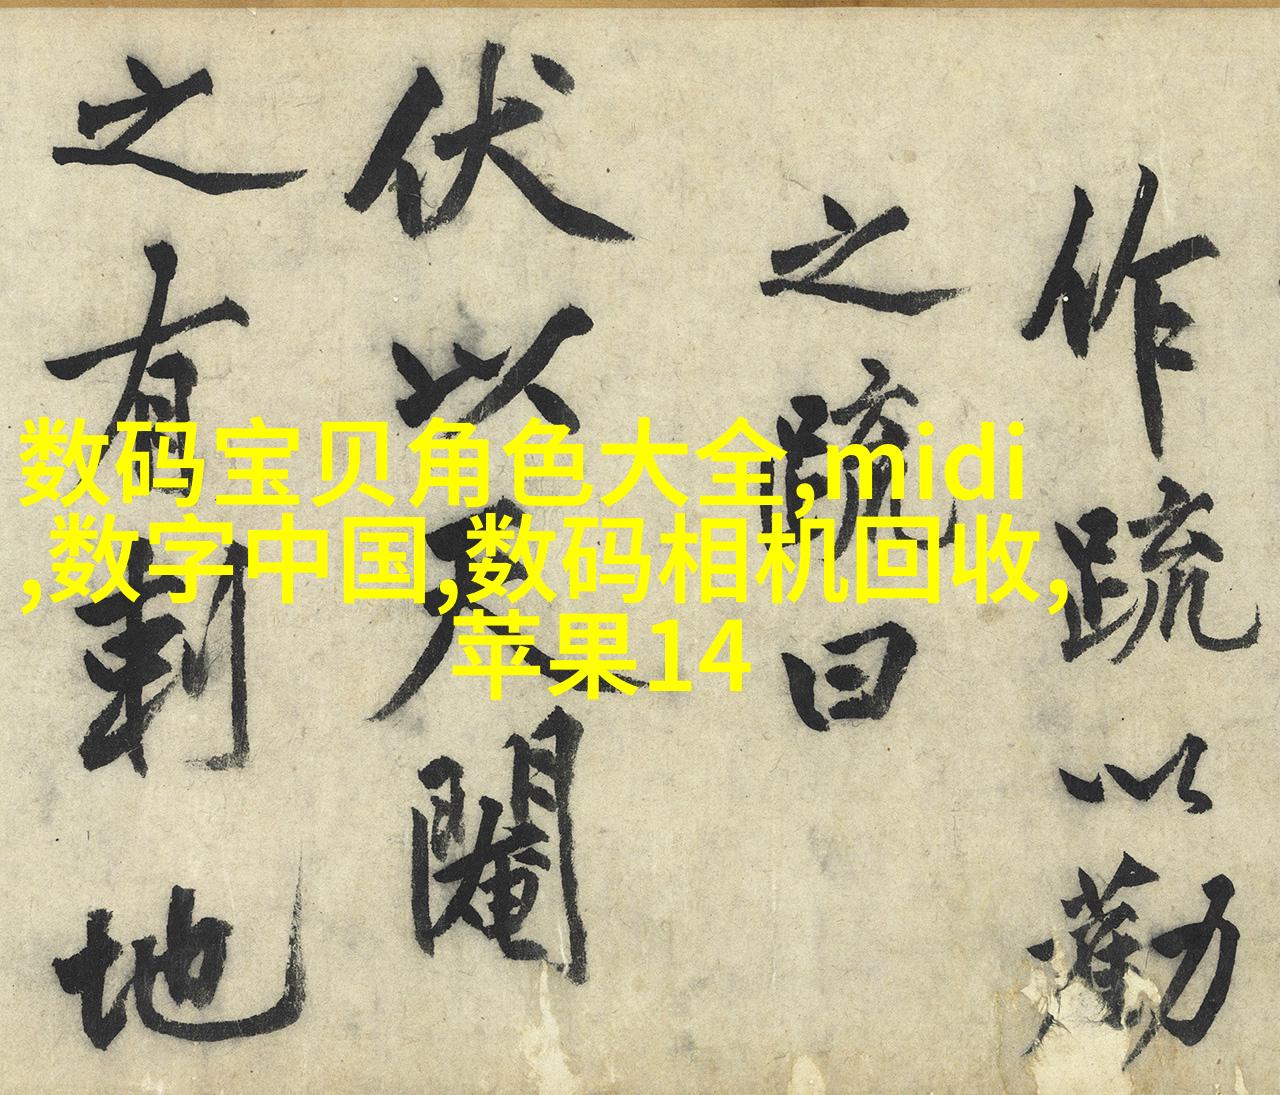 作疏以勸
之疏曰
伏以天閹
之有剩地
数码宝贝角色大全,midi
,数字中国,数码相机回收,
苹果14